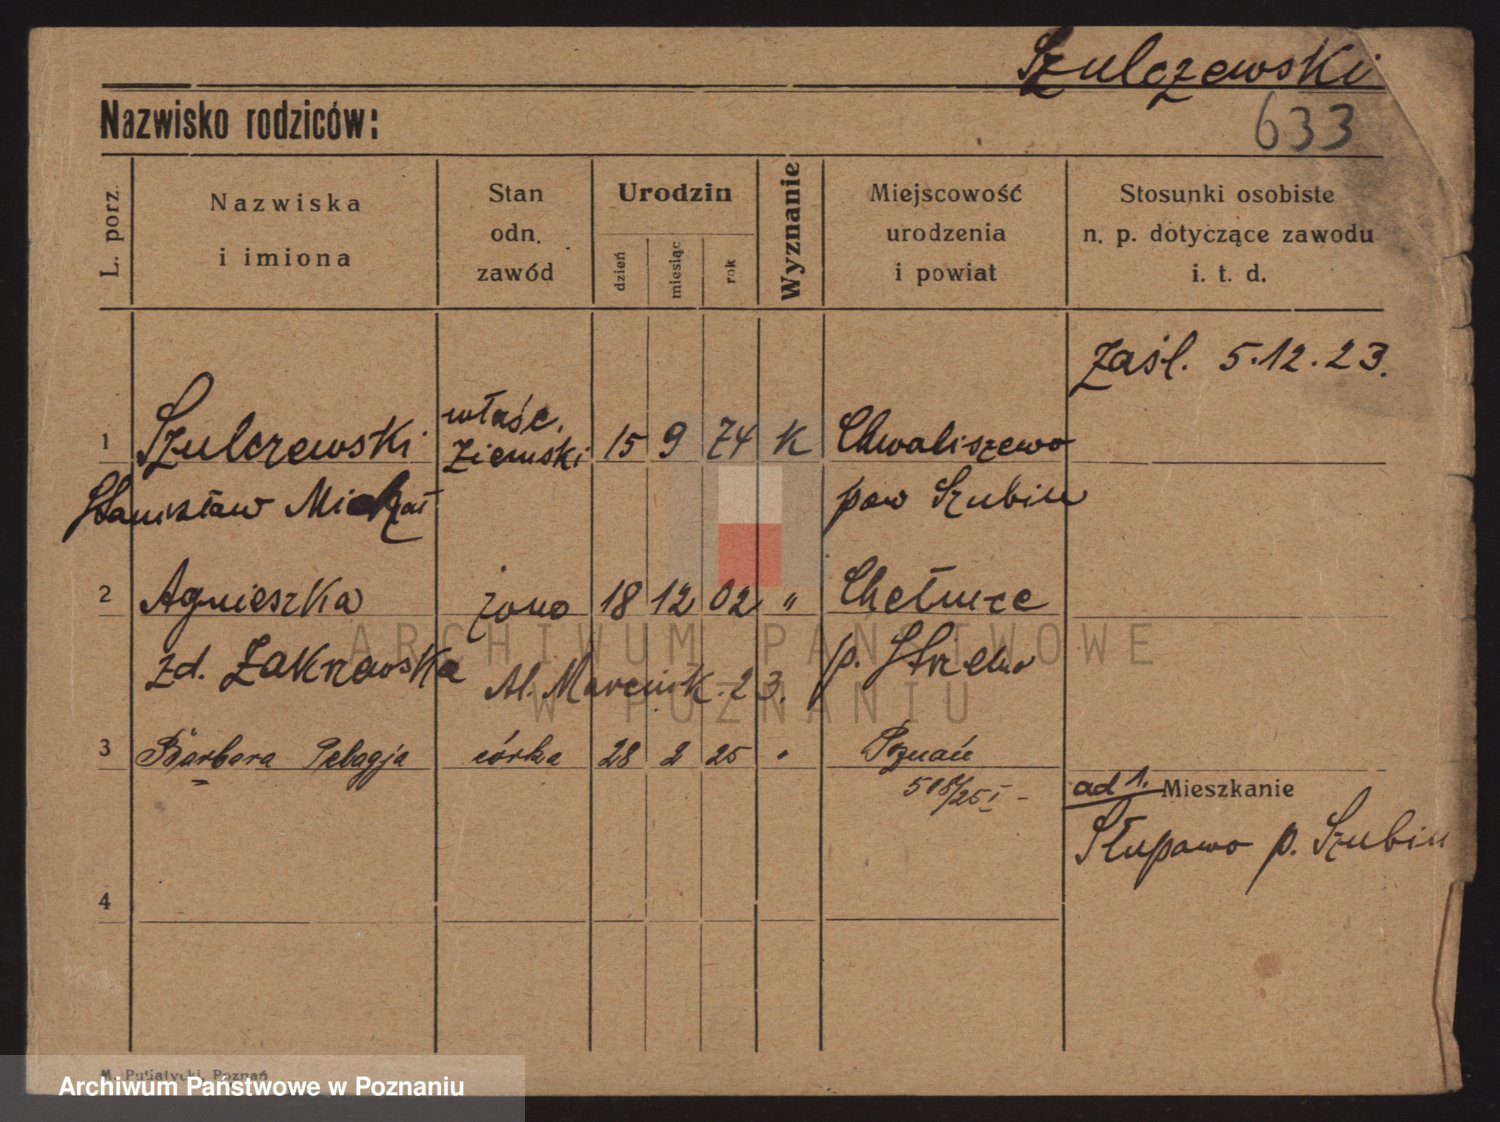 Szulczewski
Nazwisko rodziców:
633
L. porz.
Nazwiska
i imiona
Stan
odn.
zawód
Urodzin
dzień
miesiąc
rok
Wyznanie
Miejscowość
urodzenia
i powiat
Stosunki osobiste
n. p. dotyczące zawodu
i. t. d.
zaśl. 5.12.23.
właśc.
1 Szulczewski Ziemski 15 9 74 K Chwaliszewo
Stanisław Michał pow Szubin
2 Agnieszka żona 18 12 02 " Chełmce
zd. Zakrzewska p. Strzelno
Al. Marcink. 23.
3 Barbara Pelagja córka 28 2 25 " Poznań
508/25 I -
ad 1. Mieszkanie
Słupowo p. Szubin
4
ARCHIWUM PAŃSTWOWE
W POZNANIU
M. Putiatycki, Poznań
Archiwum Państwowe w Poznaniu